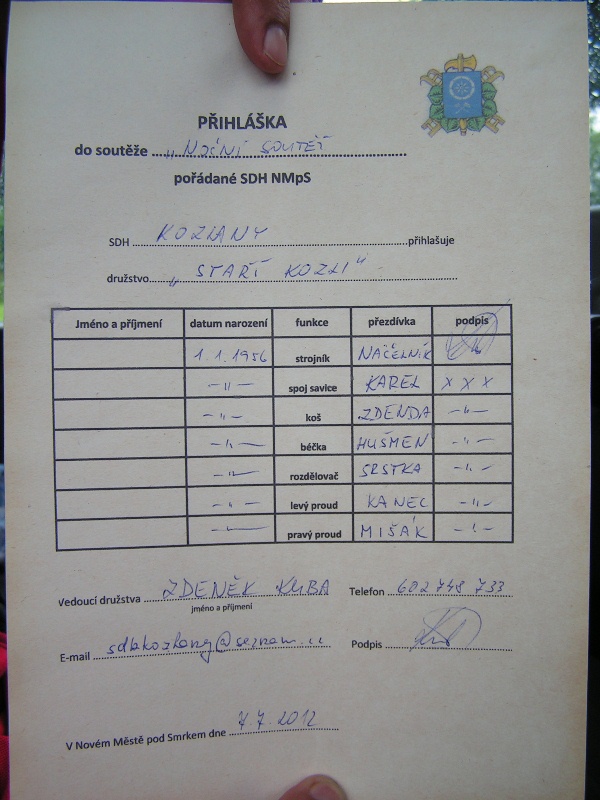 PŘIHLÁŠKA
do soutěže „NOČNÍ SOUTĚŽ
pořádané SDH NMpS
SDH KOZLANY přihlašuje
družstvo „STAŘÍ KOZLI"
Jméno a příjmení datum narození funkce přezdívka podpis
1.1.1956 strojník NÁČELNÍK
-"- spoj savice KAREL X X X
-"- koš ZDENDA -"-
-"- béčka HUŠMEN -"-
-"- rozdělovač SRSTKA -"-
-"- levý proud KANEC -"-
-"- pravý proud MIŠÁK -"-
Vedoucí družstva ZDENĚK KUBA Telefon 602 748 733
jméno a příjmení
E-mail sdhkozlany@seznam.cz Podpis
V Novém Městě pod Smrkem dne 7.7.2012